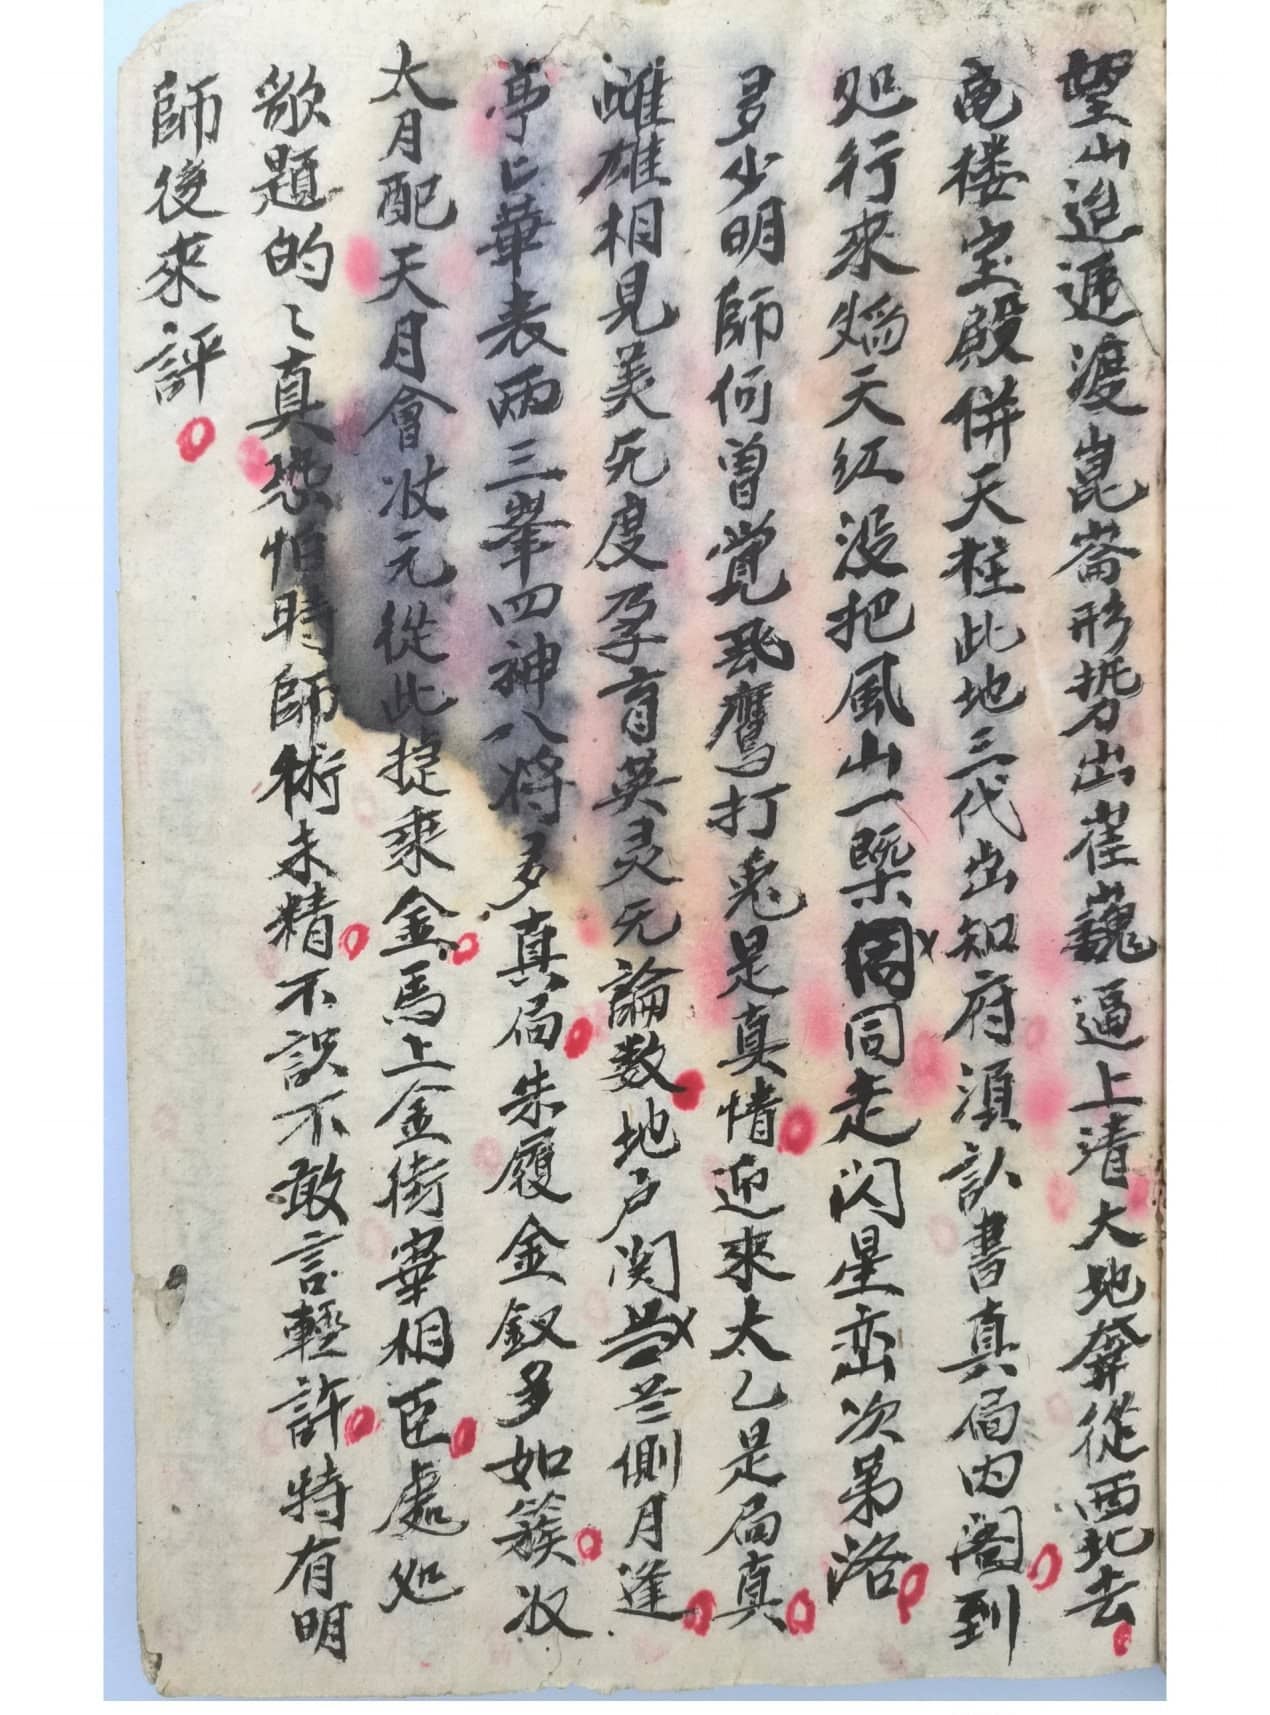 望山迢遞渡崑崙形势出崔巍逼上清大地奔從西北去
竜楼宝殿併天柱此地三代出知府須訪書真局内阁到
处行來焰天红没把風山一槩同走闪星峦次第洛
多少明師何曾覚飛鷹打兎是真情迎來太乙是局真
雌雄相見美旡度孕育英灵旡論数地户関兰側月逢
亭〻華表兩三峯四神八将多真局朱履金釵多如簇汝
太月配天月會汝元從此捷乘金馬上金街宰相臣處処
歌題的〻真恐怕時師術未精不説不敢言輕許特有明
師後來評